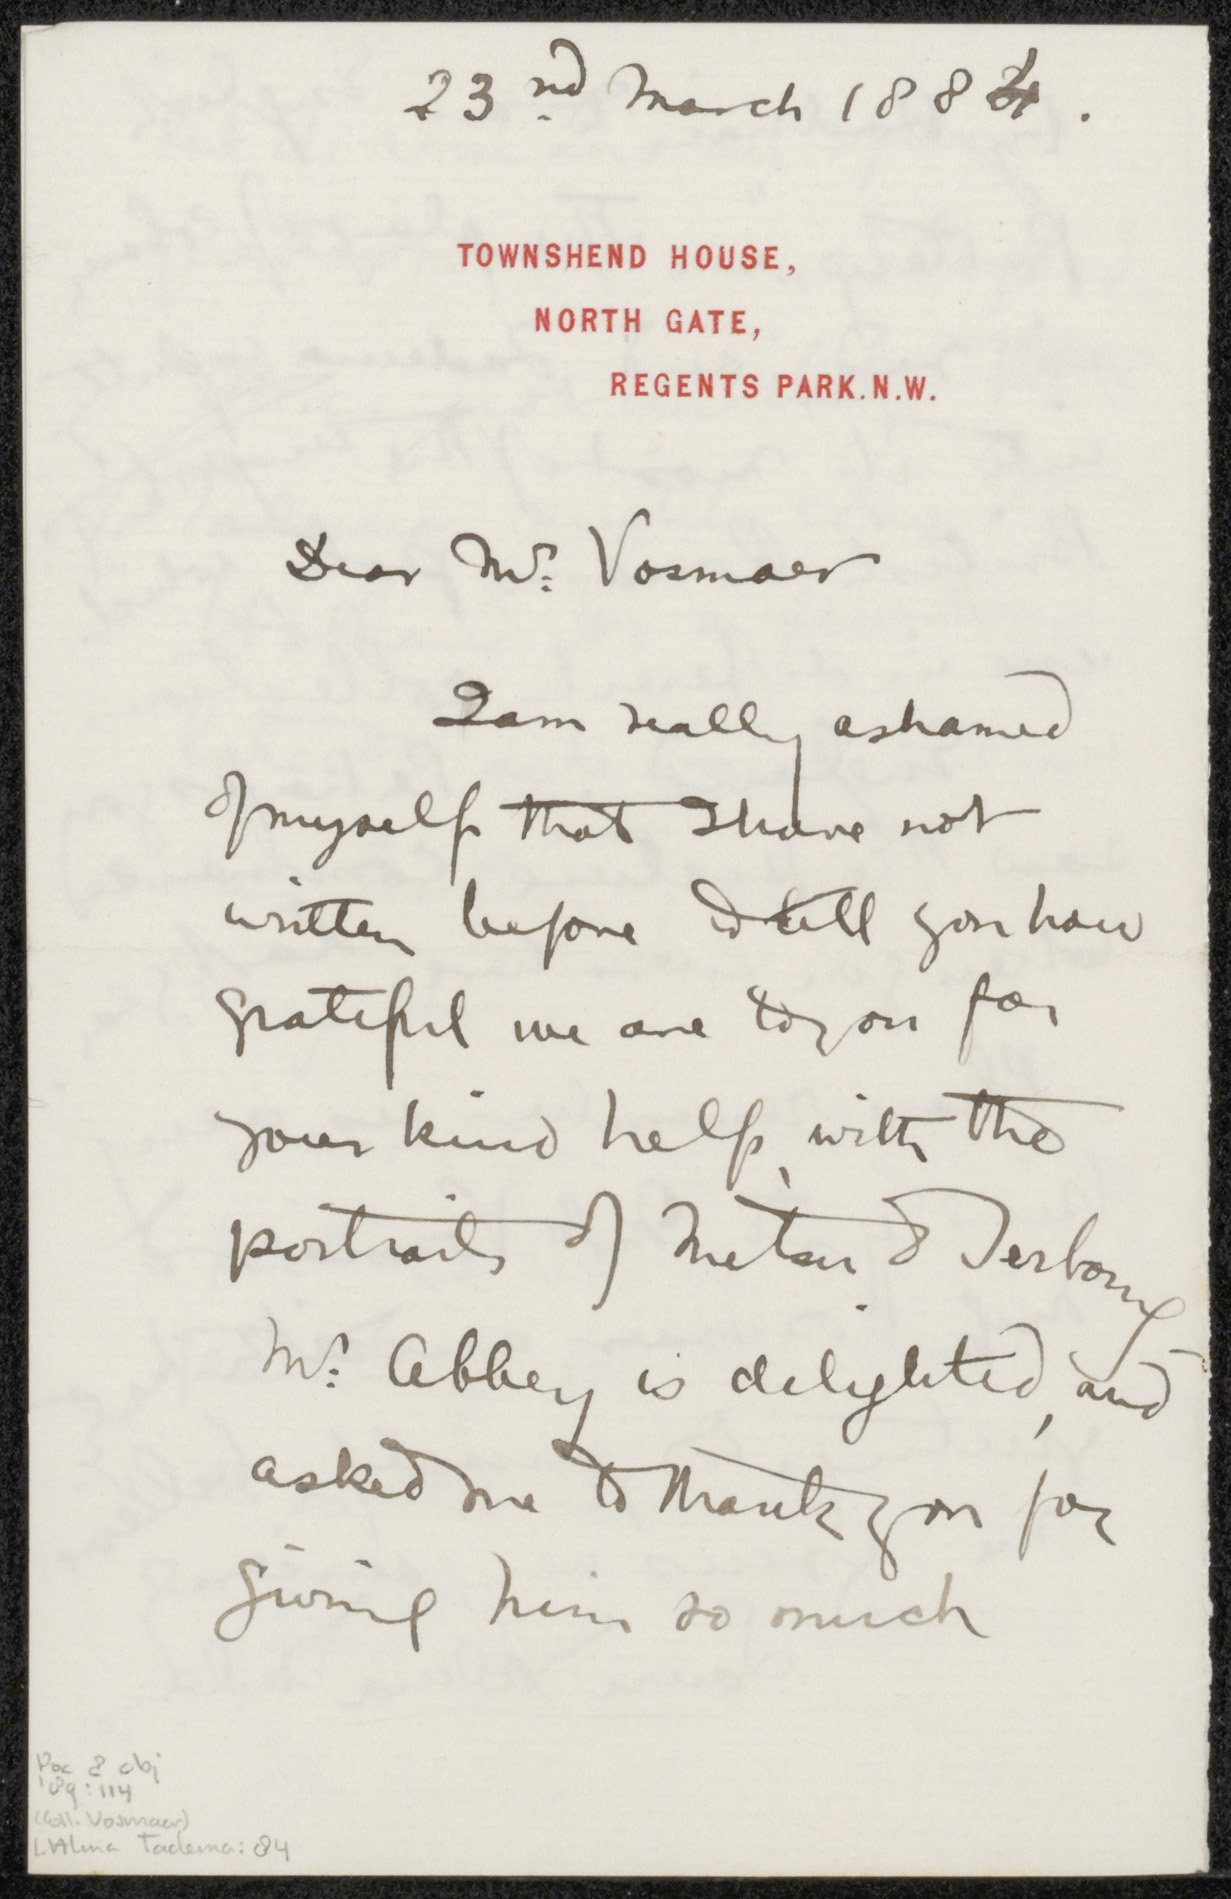 23nd March 1884.
TOWNSHEND HOUSE,
NORTH GATE,
REGENTS PARK.N.W.
Dear Mr. Vosmaer
I am really ashamed
of myself that I have not
written before to tell you how
grateful we are to you for
your kind help, with the
portraits of Metsu & Terborg
Mr. Abbey is delighted, and
asked me to thank you for
giving him so much
Doc 2 obj
'89:114
(Coll. Vosmaer)
L. Alma Tadema: 84